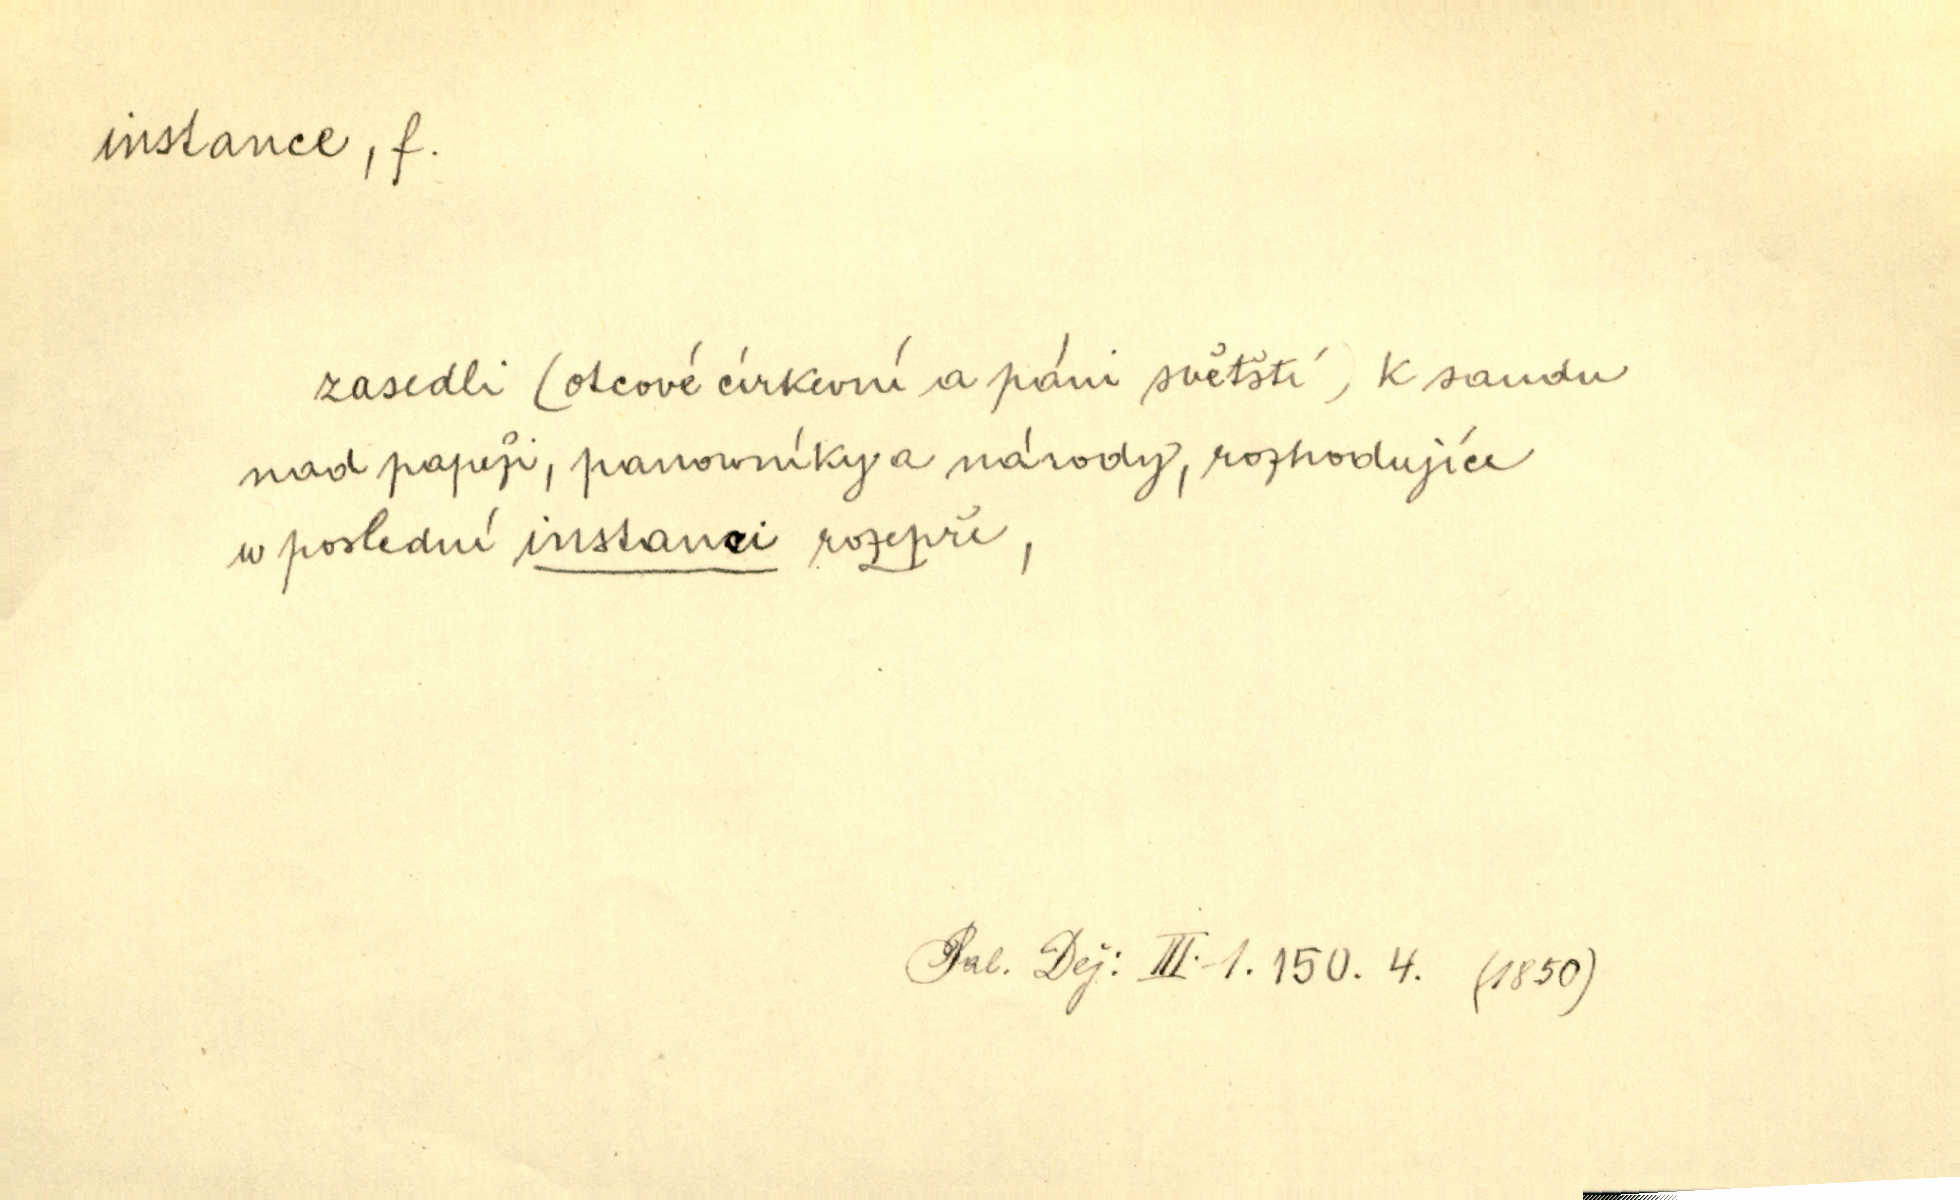 instance, f.
zasedli (otcové církevní a páni světští) k saudu
nad papeži, panowníky a národy, rozhodujíce
w poslední instanci rozepře,
Pal. Děj: III.-1. 150. 4. (1850)